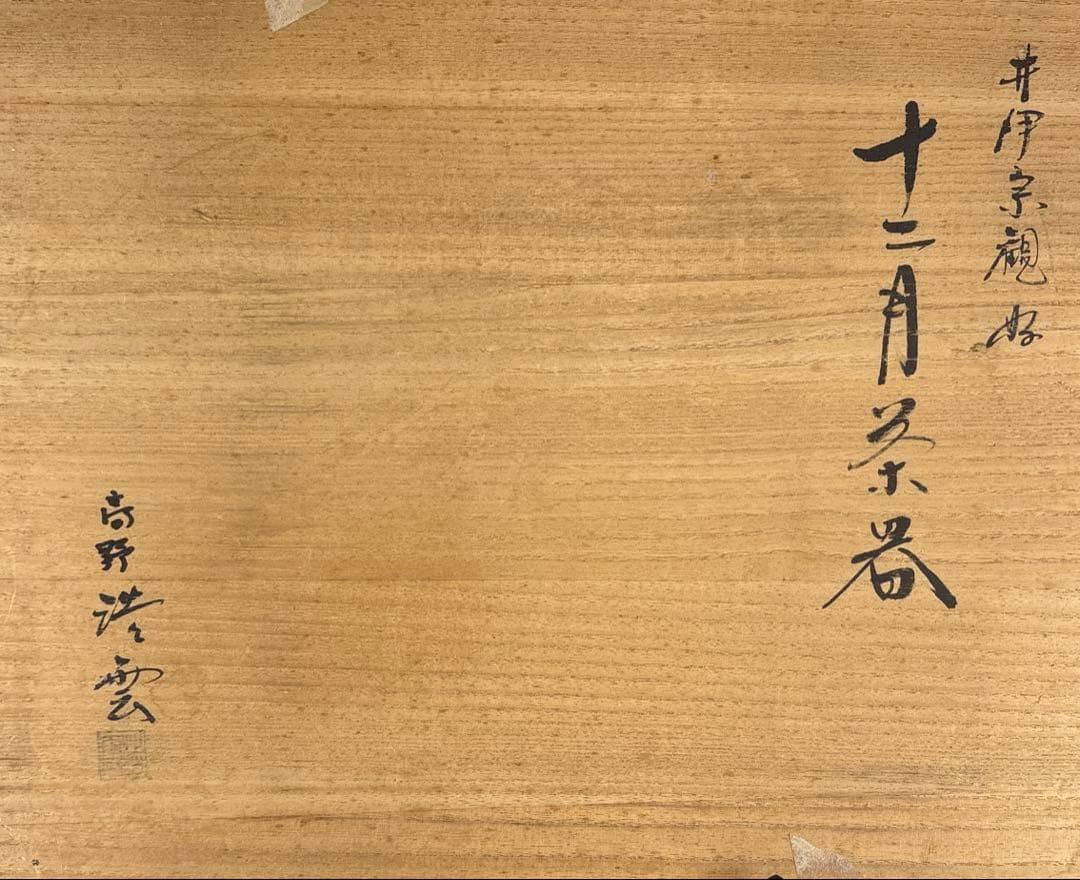 井伊宗観好
十二月茶器
高野浩雲